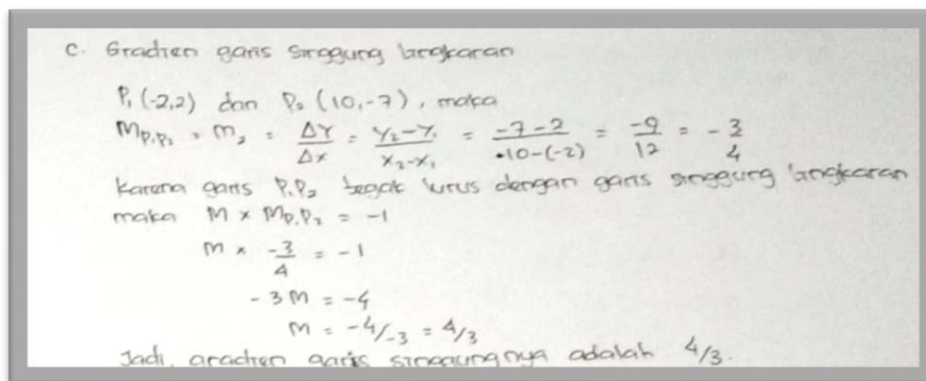 C. Gradien garis singgung lingkaran
P₁ (-2,2) dan P₂ (10,-7), maka
M_P₁P₂ = m₂ = ΔY/Δx = (Y₂-Y₁)/(X₂-X₁) = (-7-2)/(10-(-2)) = -9/12 = -3/4
Karena garis P₁P₂ tegak lurus dengan garis singgung lingkaran
maka M x M_P₁P₂ = -1
m x -3/4 = -1
-3M = -4
M = -4/-3 = 4/3
Jadi, gradien garis singgungnya adalah 4/3.